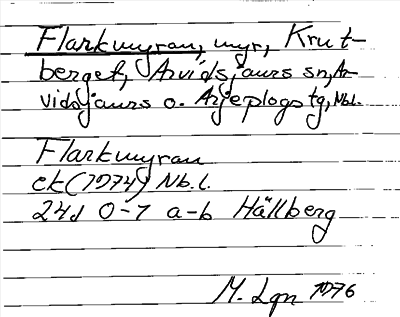 Flarkmyran, myr, Krut-
berget, Arvidsjaurs sn, Ar-
vidsjaurs o. Arjeplogs tg, Nbl.
Flarkmyran
ek (1974) Nb.l.
24J 0-1 a-b Hällberg
M. Lgn 1976